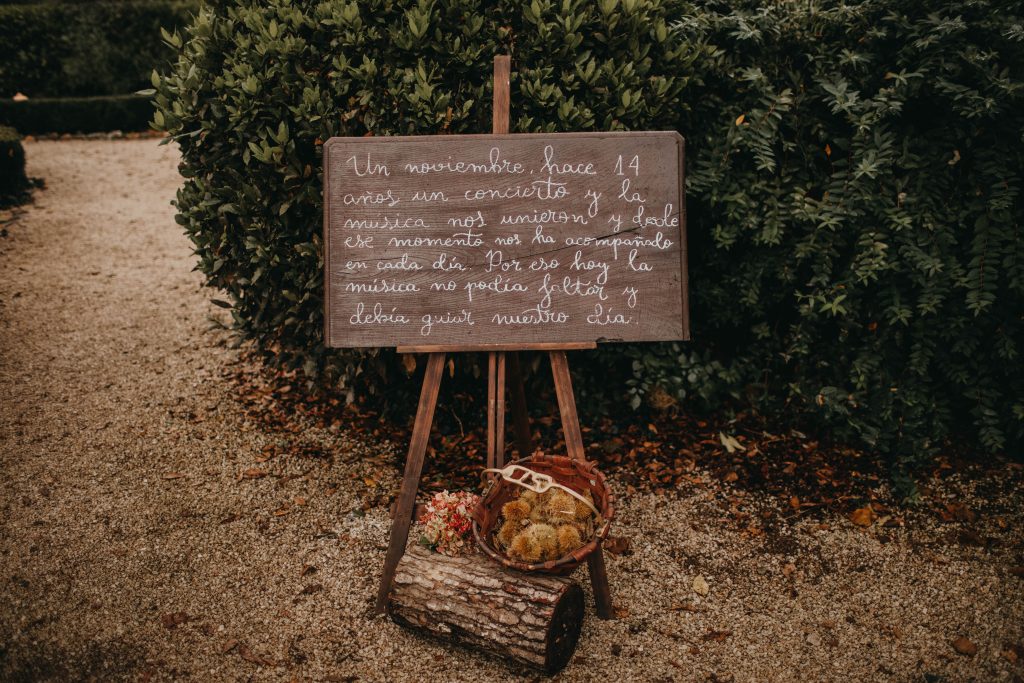 Un noviembre, hace 14
años un concierto y la
música nos unieron y desde
ese momento nos ha acompañado
en cada día. Por eso hoy la
música no podía faltar y
debía guiar nuestro día.